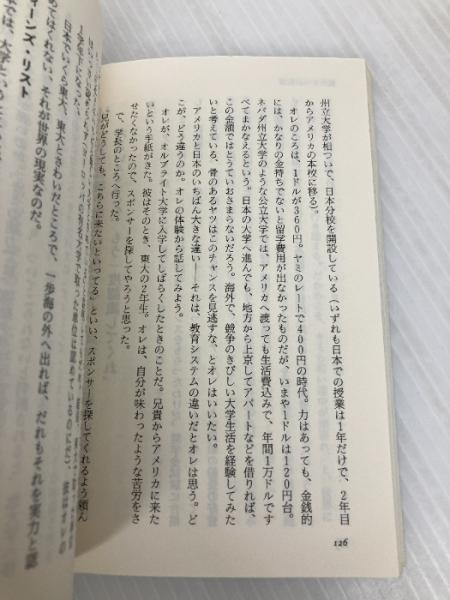 州立大学が相ついで、日本分校を開設している（いずれも日本での授業は1年だけで、2年目
からアメリカの本校に移る）。
オレのころは、1ドルが360円。ヤミのレートで400円の時代。力はあっても、金銭的
には、かなりの金持ちでないと留学費用が出なかったものだが、いまや1ドルは120円台。
ネバダ州立大学のような公立大学では、アメリカへ渡っても生活費込みで、年間1万ドルです
べてまかなえるという。日本の大学へ進んでも、地方から上京してアパートなどを借りれば、
この金額ではとうていおさまらないだろう。海外で、競争のきびしい大学生活を経験してみた
いと考えている、骨のあるヤツはこのチャンスを見逃すな、とオレはいいたい。
アメリカと日本のいちばん大きな違い――それは、教育システムの違いだとオレは思う。ど
こが、どう違うのか。オレの体験から話してみよう。
オレが、オルブライト大学に入学してしばらくしたときのことだ。兄貴からアメリカに来た
いという手紙がきた。彼はそのとき、東大の2年生。オレは、自分が味わったような苦労をさ
せたくなかったので、スポンサーを探してやろうと思った。
で、学長のところへ行った。
兄がどうしても、こちらに来ないといってる」といい、スポンサーを探してくれるよう頼ん
126
日本でいくら東大、東大とさわいだところで、一歩海の外へ出れば、だれもそれを実力と認
めてはくれない。それが世界の現実なのだ。
ーンズ・リスト
では、大学